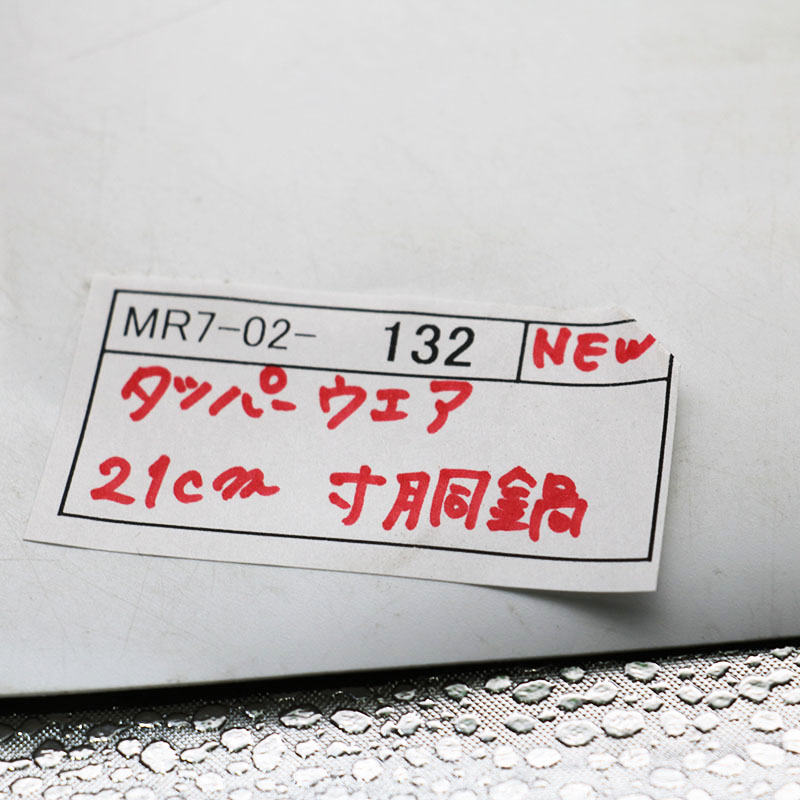 MR7-02- 132 NEW
タッパーウェア
21cm 寸胴鍋